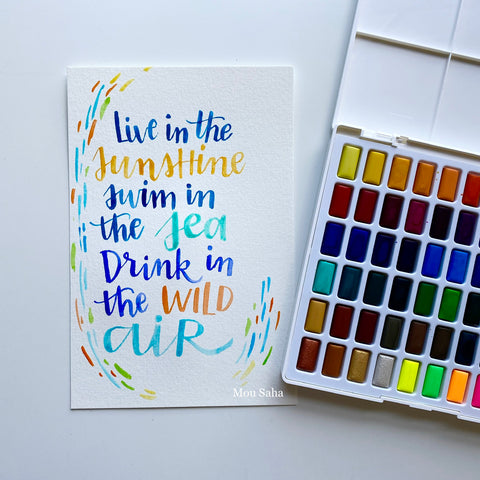 Live in the
SunsHine
swim in
the sea
Drink in
the WILD
aiR
Mou Saha